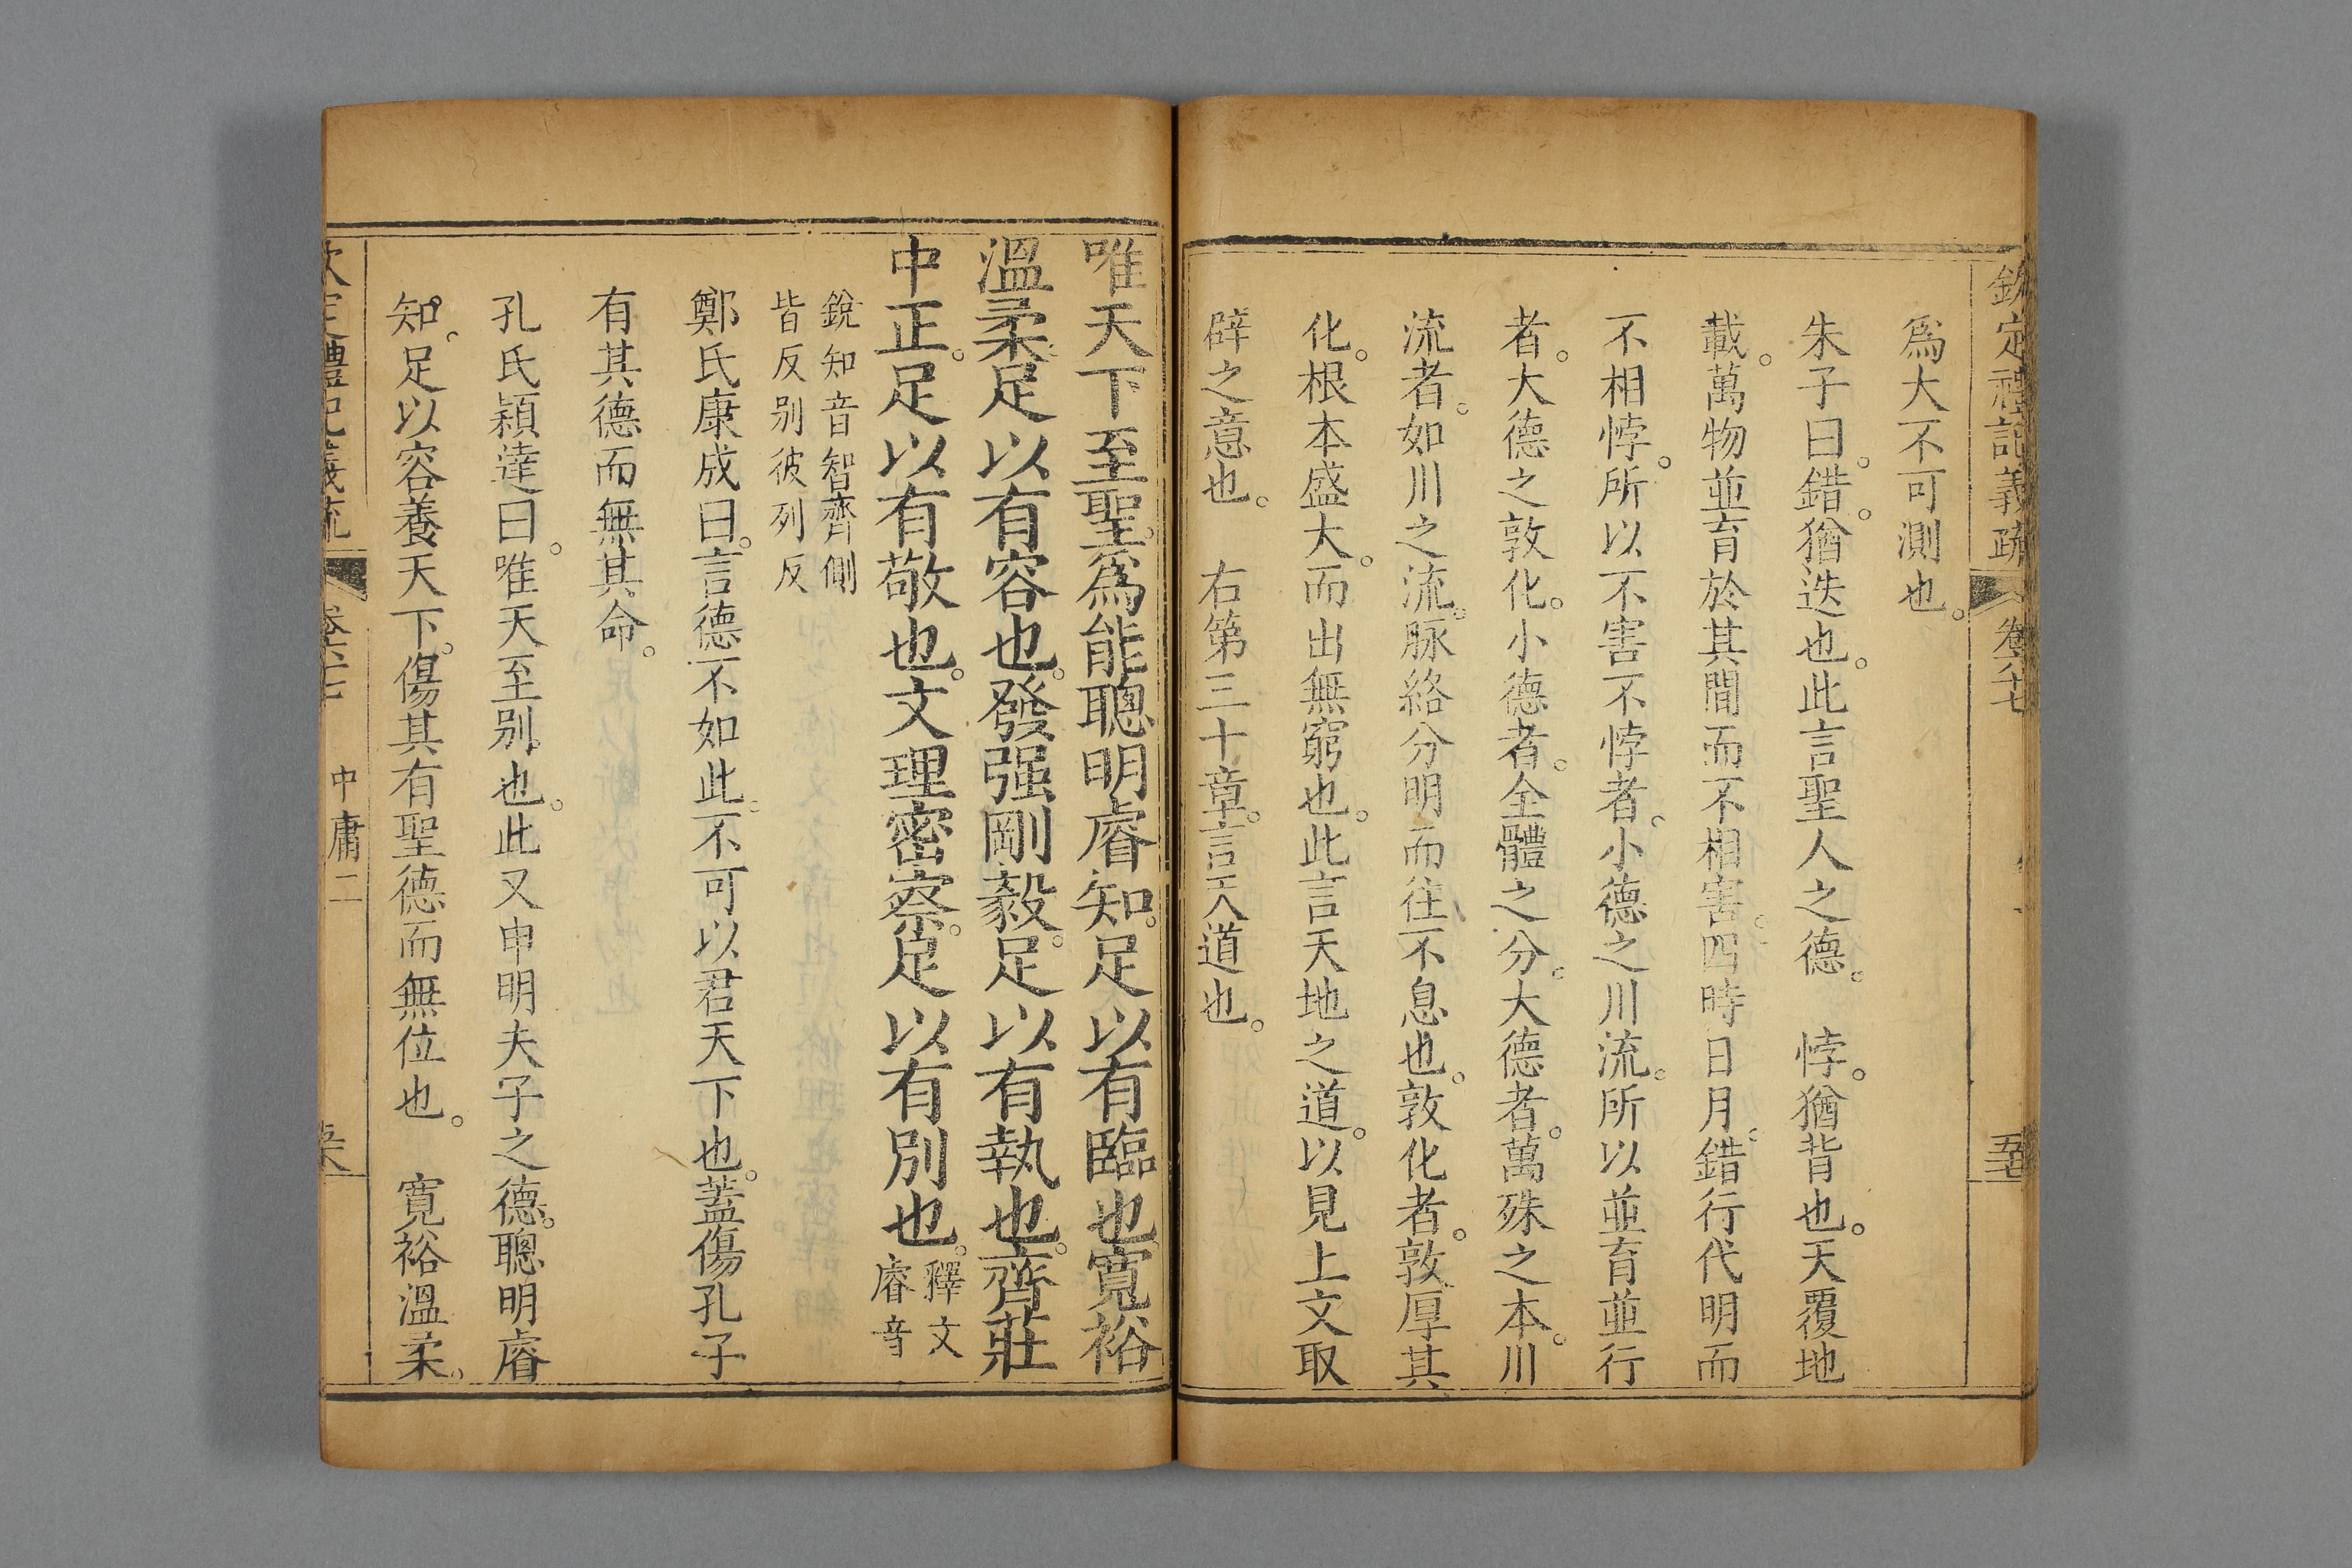 欽定禮記義疏 卷六十七
爲大不可測也。
朱子曰。錯。猶迭也。此言聖人之德。 悖。猶背也。天覆地
載。萬物並育於其間而不相害。四時日月。錯行代明而
不相悖。所以不害不悖者。小德之川流。所以並育並行
者。大德之敦化。小德者。全體之分。大德者。萬殊之本。川
流者。如川之流。脉絡分明而往不息也。敦化者。敦厚其
化。根本盛大。而出無窮也。此言天地之道。以見上文取
辟之意也。 右第三十章。言天道也。
唯天下至聖。爲能聰明睿知。足以有臨也。寬裕
溫柔。足以有容也。發强剛毅。足以有執也。齊莊
中正。足以有敬也。文理密察。足以有別也。釋文
睿音
銳知音智齊側
皆反別彼列反
鄭氏康成曰。言德不如此。不可以君天下也。蓋傷孔子
有其德而無其命。
孔氏穎達曰。唯天至別也。此又申明夫子之德。聰明睿
知。足以容養天下。傷其有聖德而無位也。 寬裕溫柔。
欽定禮記義疏 卷六十七 中庸二